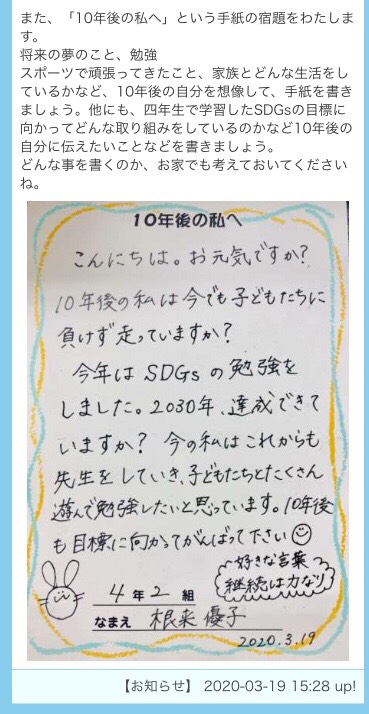 また、「10年後の私へ」という手紙の宿題をわたしま
す。
将来の夢のこと、勉強
スポーツで頑張ってきたこと、家族とどんな生活をし
ているかなど、10年後の自分を想像して、手紙を書き
ましょう。他にも、四年生で学習したSDGsの目標に
向かってどんな取り組みをしているのかなど10年後の
自分に伝えたいことなどを書きましょう。
どんな事を書くのか、お家でも考えておいてください
ね。
10年後の私へ
こんにちは。お元気ですか?
10年後の私は今でも子どもたちに
負けず走っていますか?
今年はSDGsの勉強を
しました。2030年、達成できて
いますか? 今の私はこれからも
先生をしていき、子どもたちとたくさん
遊んで勉強したいと思っています。10年後
も目標に向かってがんばって下さい
好きな言葉
継続は力なり
4年2組
なまえ 根来 優子
2020.3.19
【お知らせ】 2020-03-19 15:28 up!